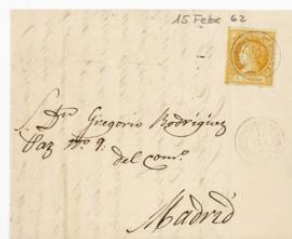 15 Febr 62
Sr. Dn. Gregorio Rodriguez
Paz No. 9.
del comº.
Madrid